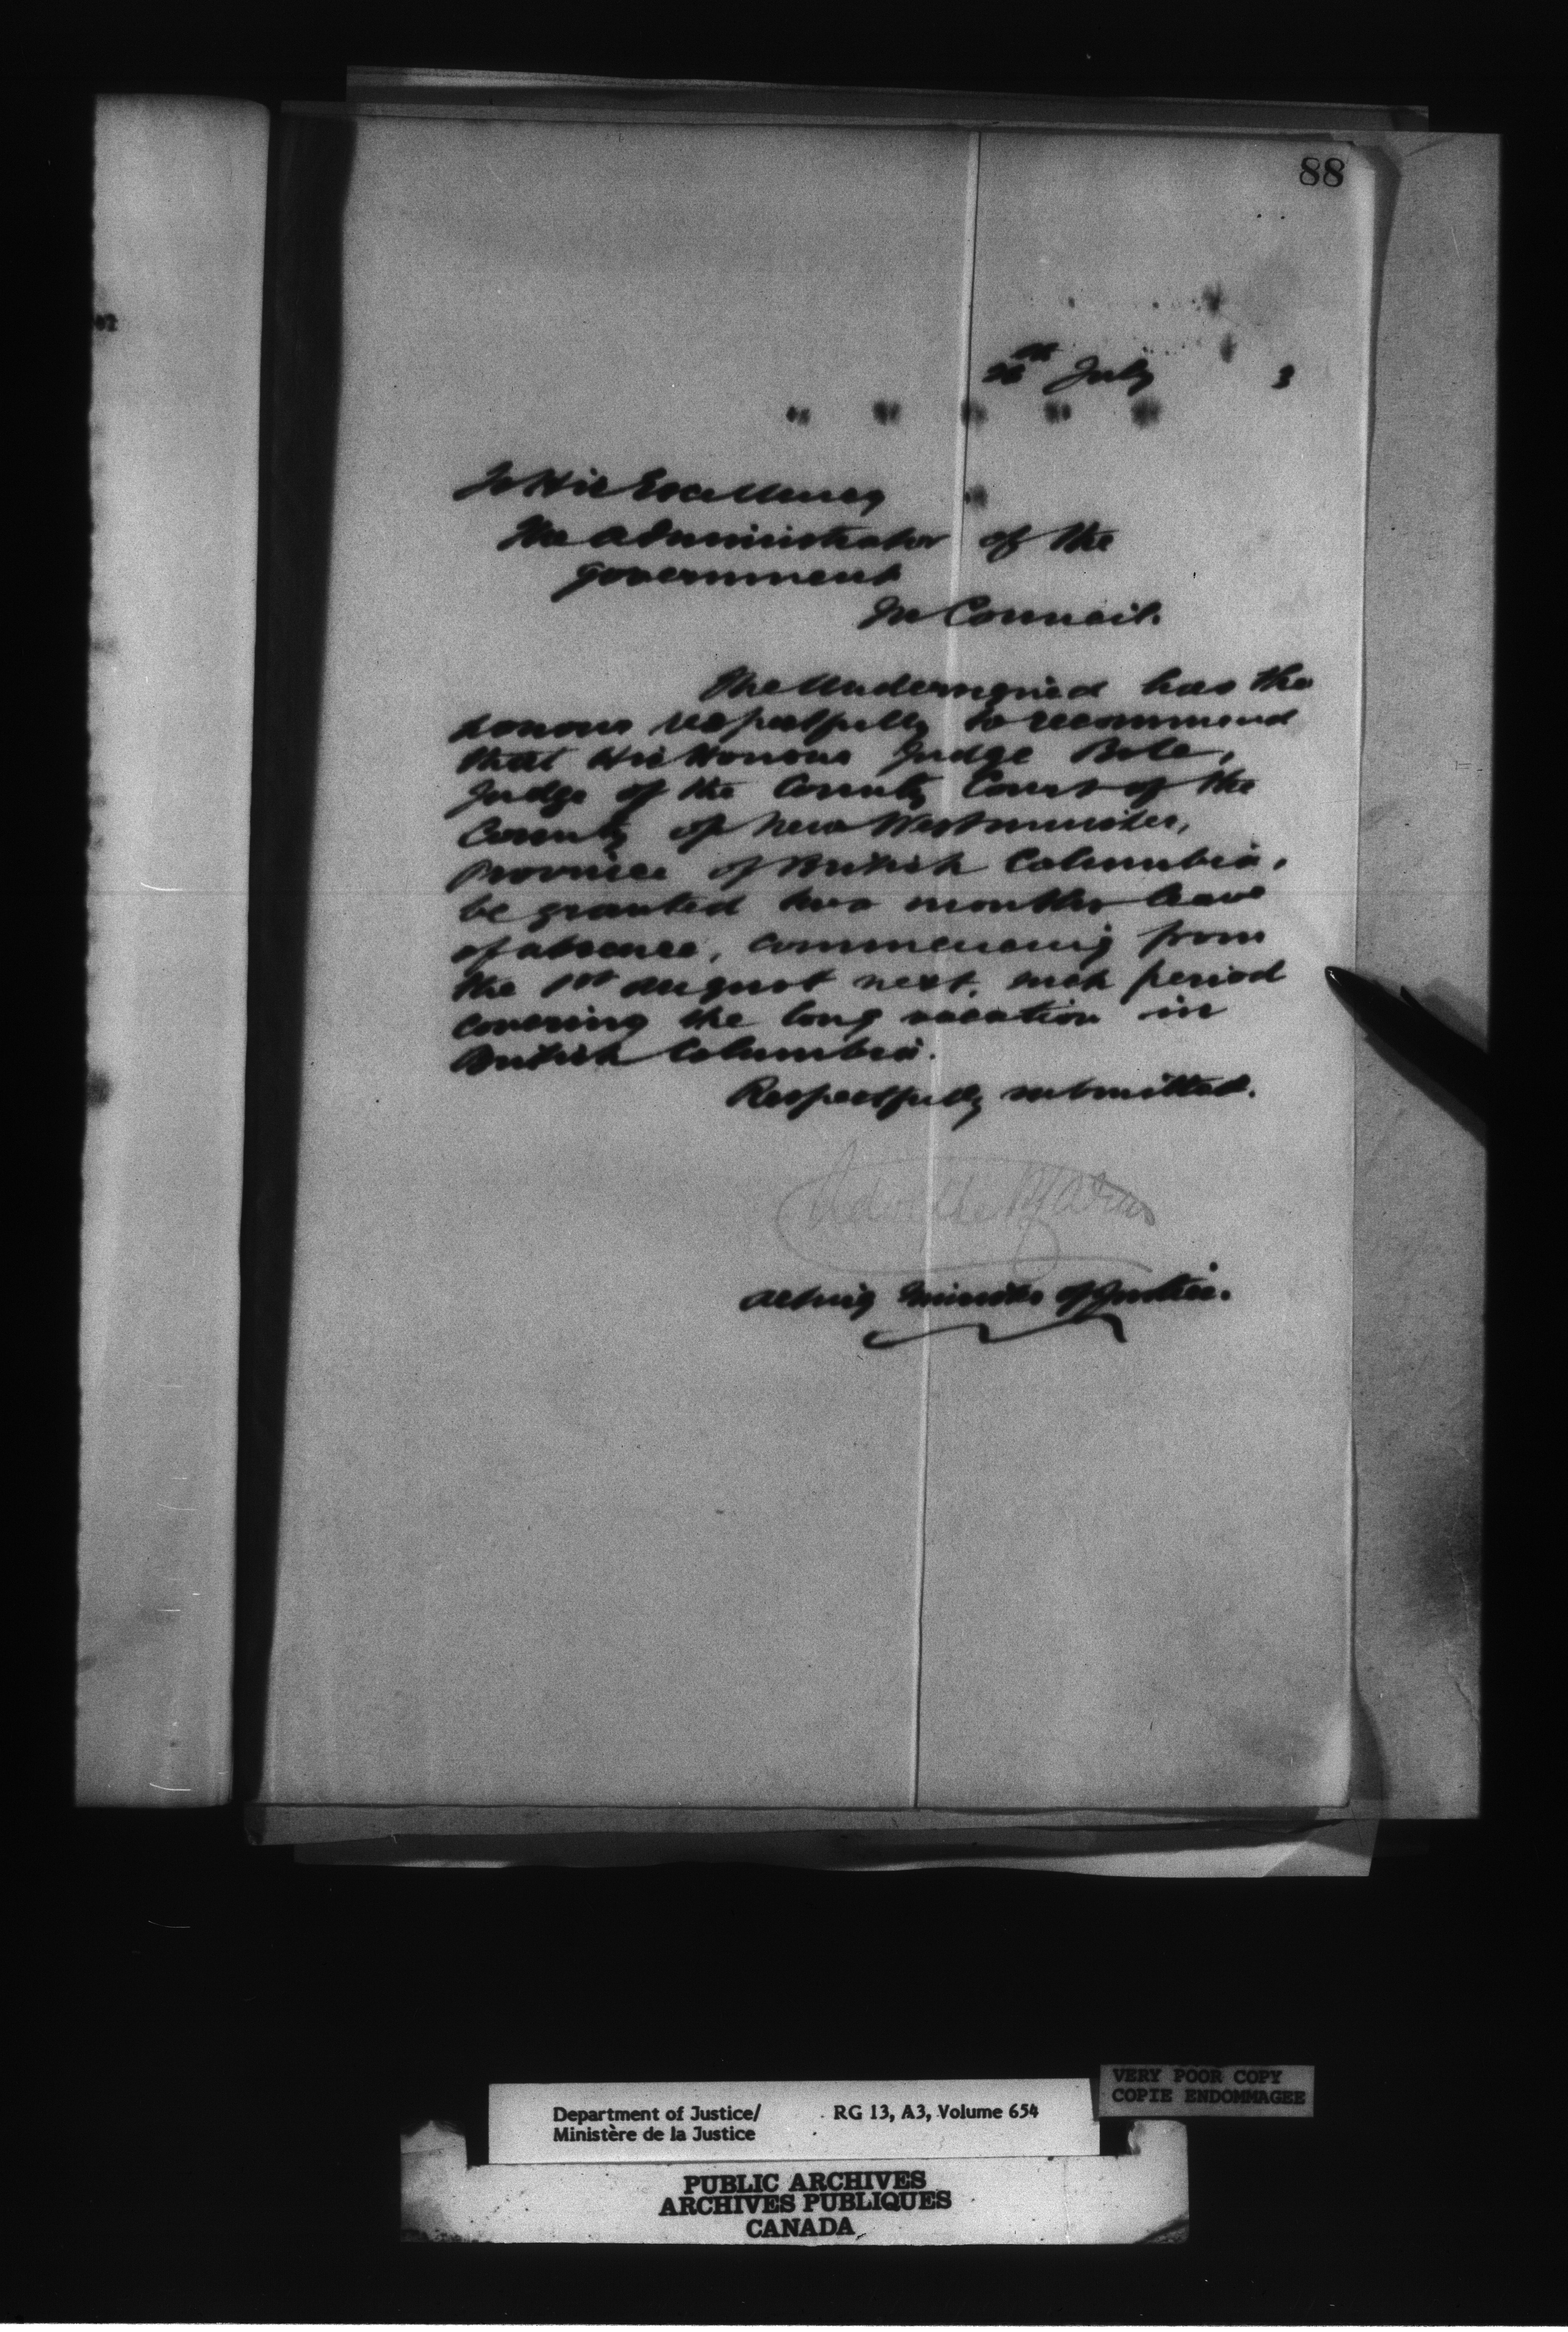 88
July 3
To His Excellency
The Administrator of the
Government
In Council.
The Undersigned has the
honour respectfully to recommend
that His Honour Judge Bole,
Judge of the County Court of the
County of New Westminster,
Province of British Columbia,
be granted two months leave
of absence, commencing from
the 1st August next, such period
covering the long vacation in
British Columbia.
Respectfully submitted.
Acting Minister of Justice.
VERY POOR COPY
COPIE ENDOMMAGEE
Department of Justice/ RG 13, A3, Volume 654
Ministère de la Justice
PUBLIC ARCHIVES
ARCHIVES PUBLIQUES
CANADA